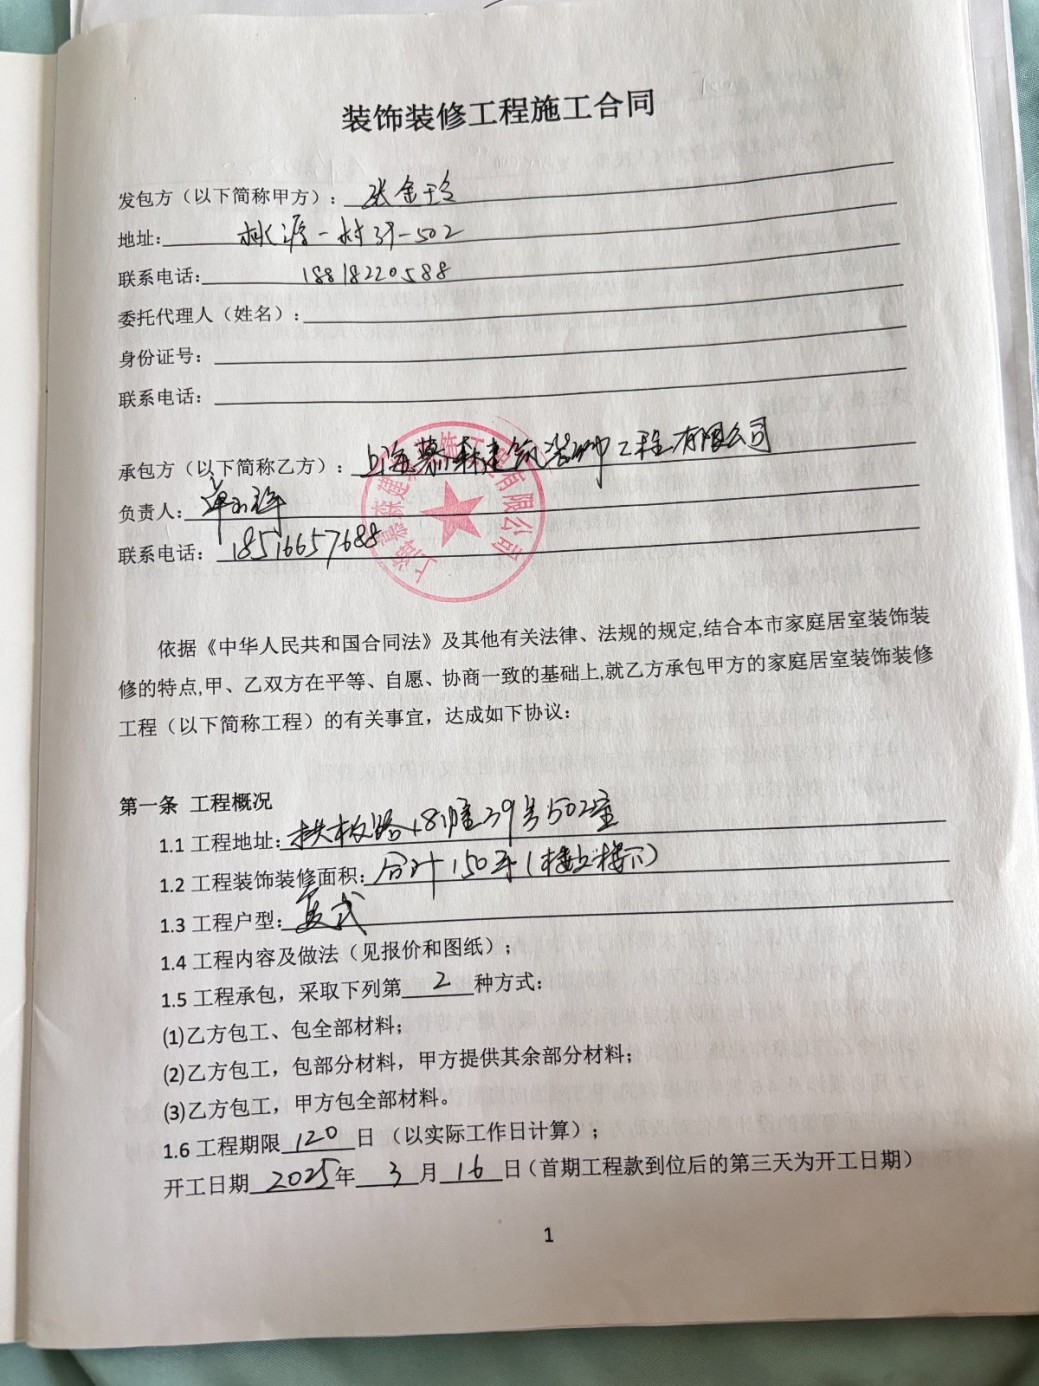 装饰装修工程施工合同
发包方（以下简称甲方）：张金玲
地址：桃源一村39-502
联系电话：18818220588
委托代理人（姓名）：
身份证号：
联系电话：
承包方（以下简称乙方）：上海慕森建筑装饰工程有限公司
负责人：
联系电话：18516657688
依据《中华人民共和国合同法》及其他有关法律、法规的规定,结合本市家庭居室装饰装
修的特点,甲、乙双方在平等、自愿、协商一致的基础上,就乙方承包甲方的家庭居室装饰装修
工程（以下简称工程）的有关事宜，达成如下协议：
第一条 工程概况
1.1 工程地址：路18幢39号502室
1.2 工程装饰装修面积：合计150平（楼上楼下）
1.3 工程户型：复式
1.4 工程内容及做法（见报价和图纸）；
1.5 工程承包，采取下列第2种方式：
⑴乙方包工、包全部材料；
⑵乙方包工，包部分材料，甲方提供其余部分材料；
⑶乙方包工，甲方包全部材料。
1.6 工程期限120日（以实际工作日计算）；
开工日期2025年3月16日（首期工程款到位后的第三天为开工日期）
1